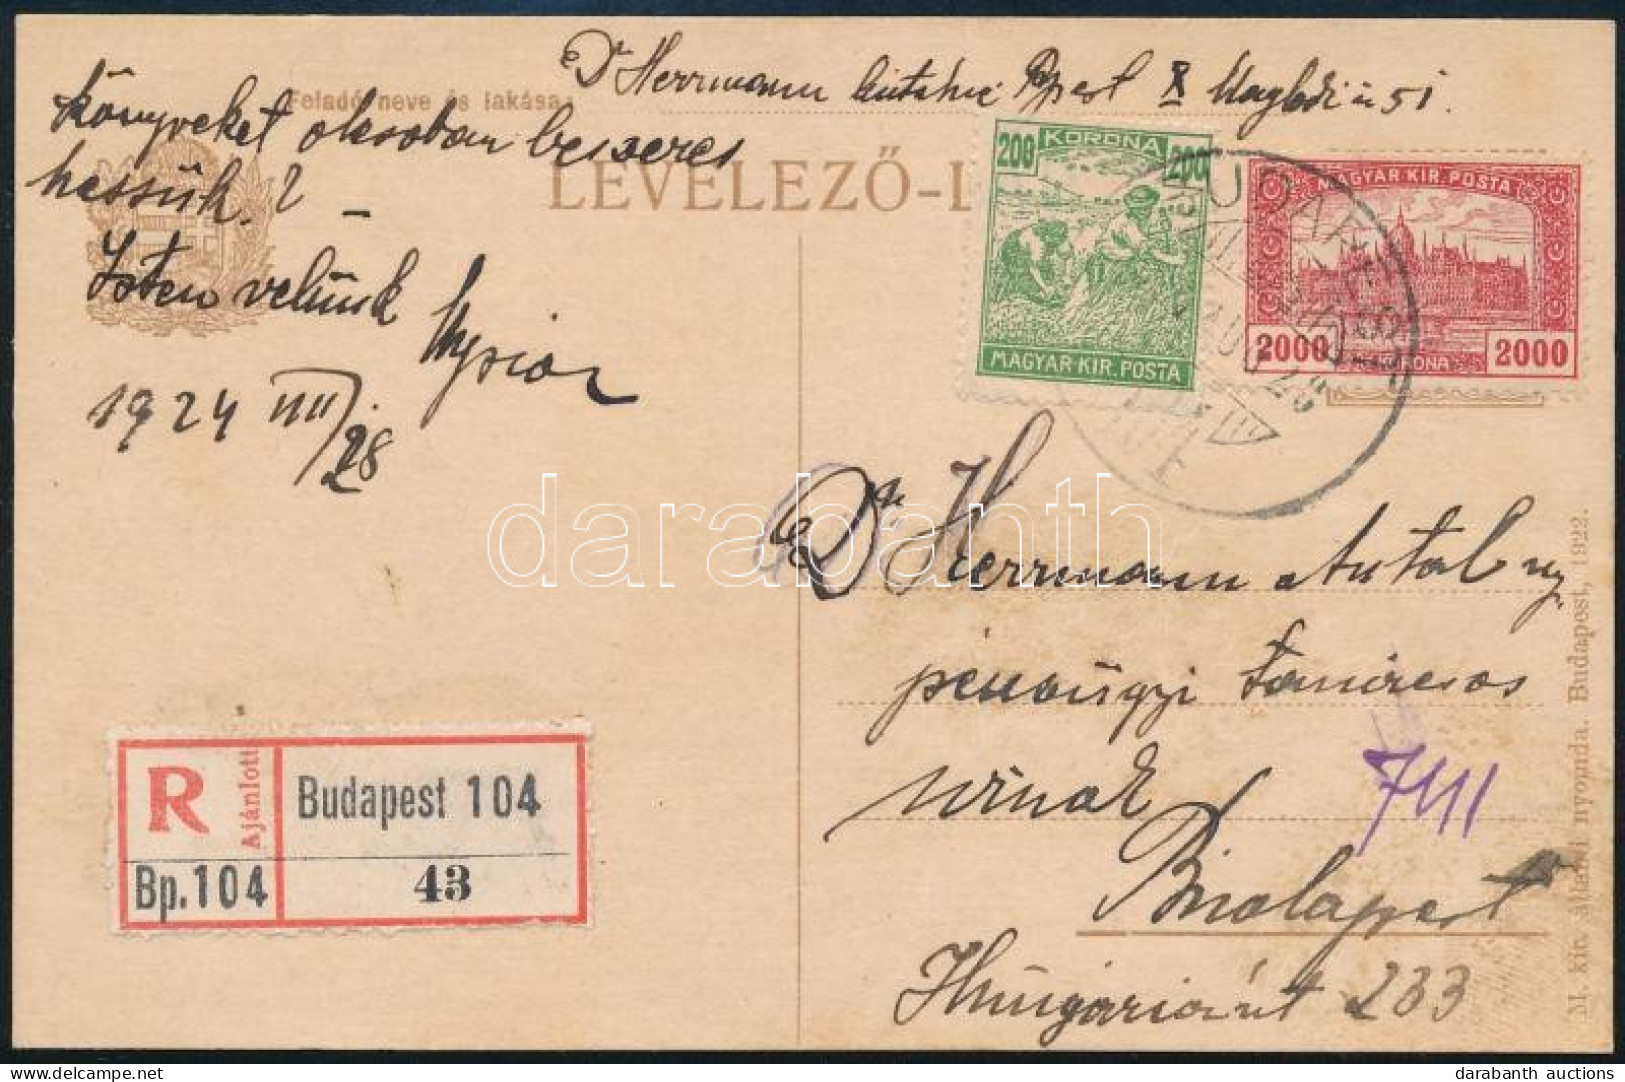 Dr Herrmann Bpest X Maglódi út 51.
Feladó neve és lakása:
könyveket olcsóban beszerez
hessük?
LEVELEZŐ-L
Isten velünk
1924 VIII/28
200 KORONA 200
MAGYAR KIR. POSTA
MAGYAR KIR. POSTA
2000 KORONA 2000
BUDAPEST
darabanth
Dr Herrmann Antal ny.
pénzügyi tanácsos
úrnak
7411
Budapest
Hungária út 233
R Ajánlott
Budapest 104
Bp.104
43
M. kir. állami nyomda. Budapest, 1922.
darabanth auctions